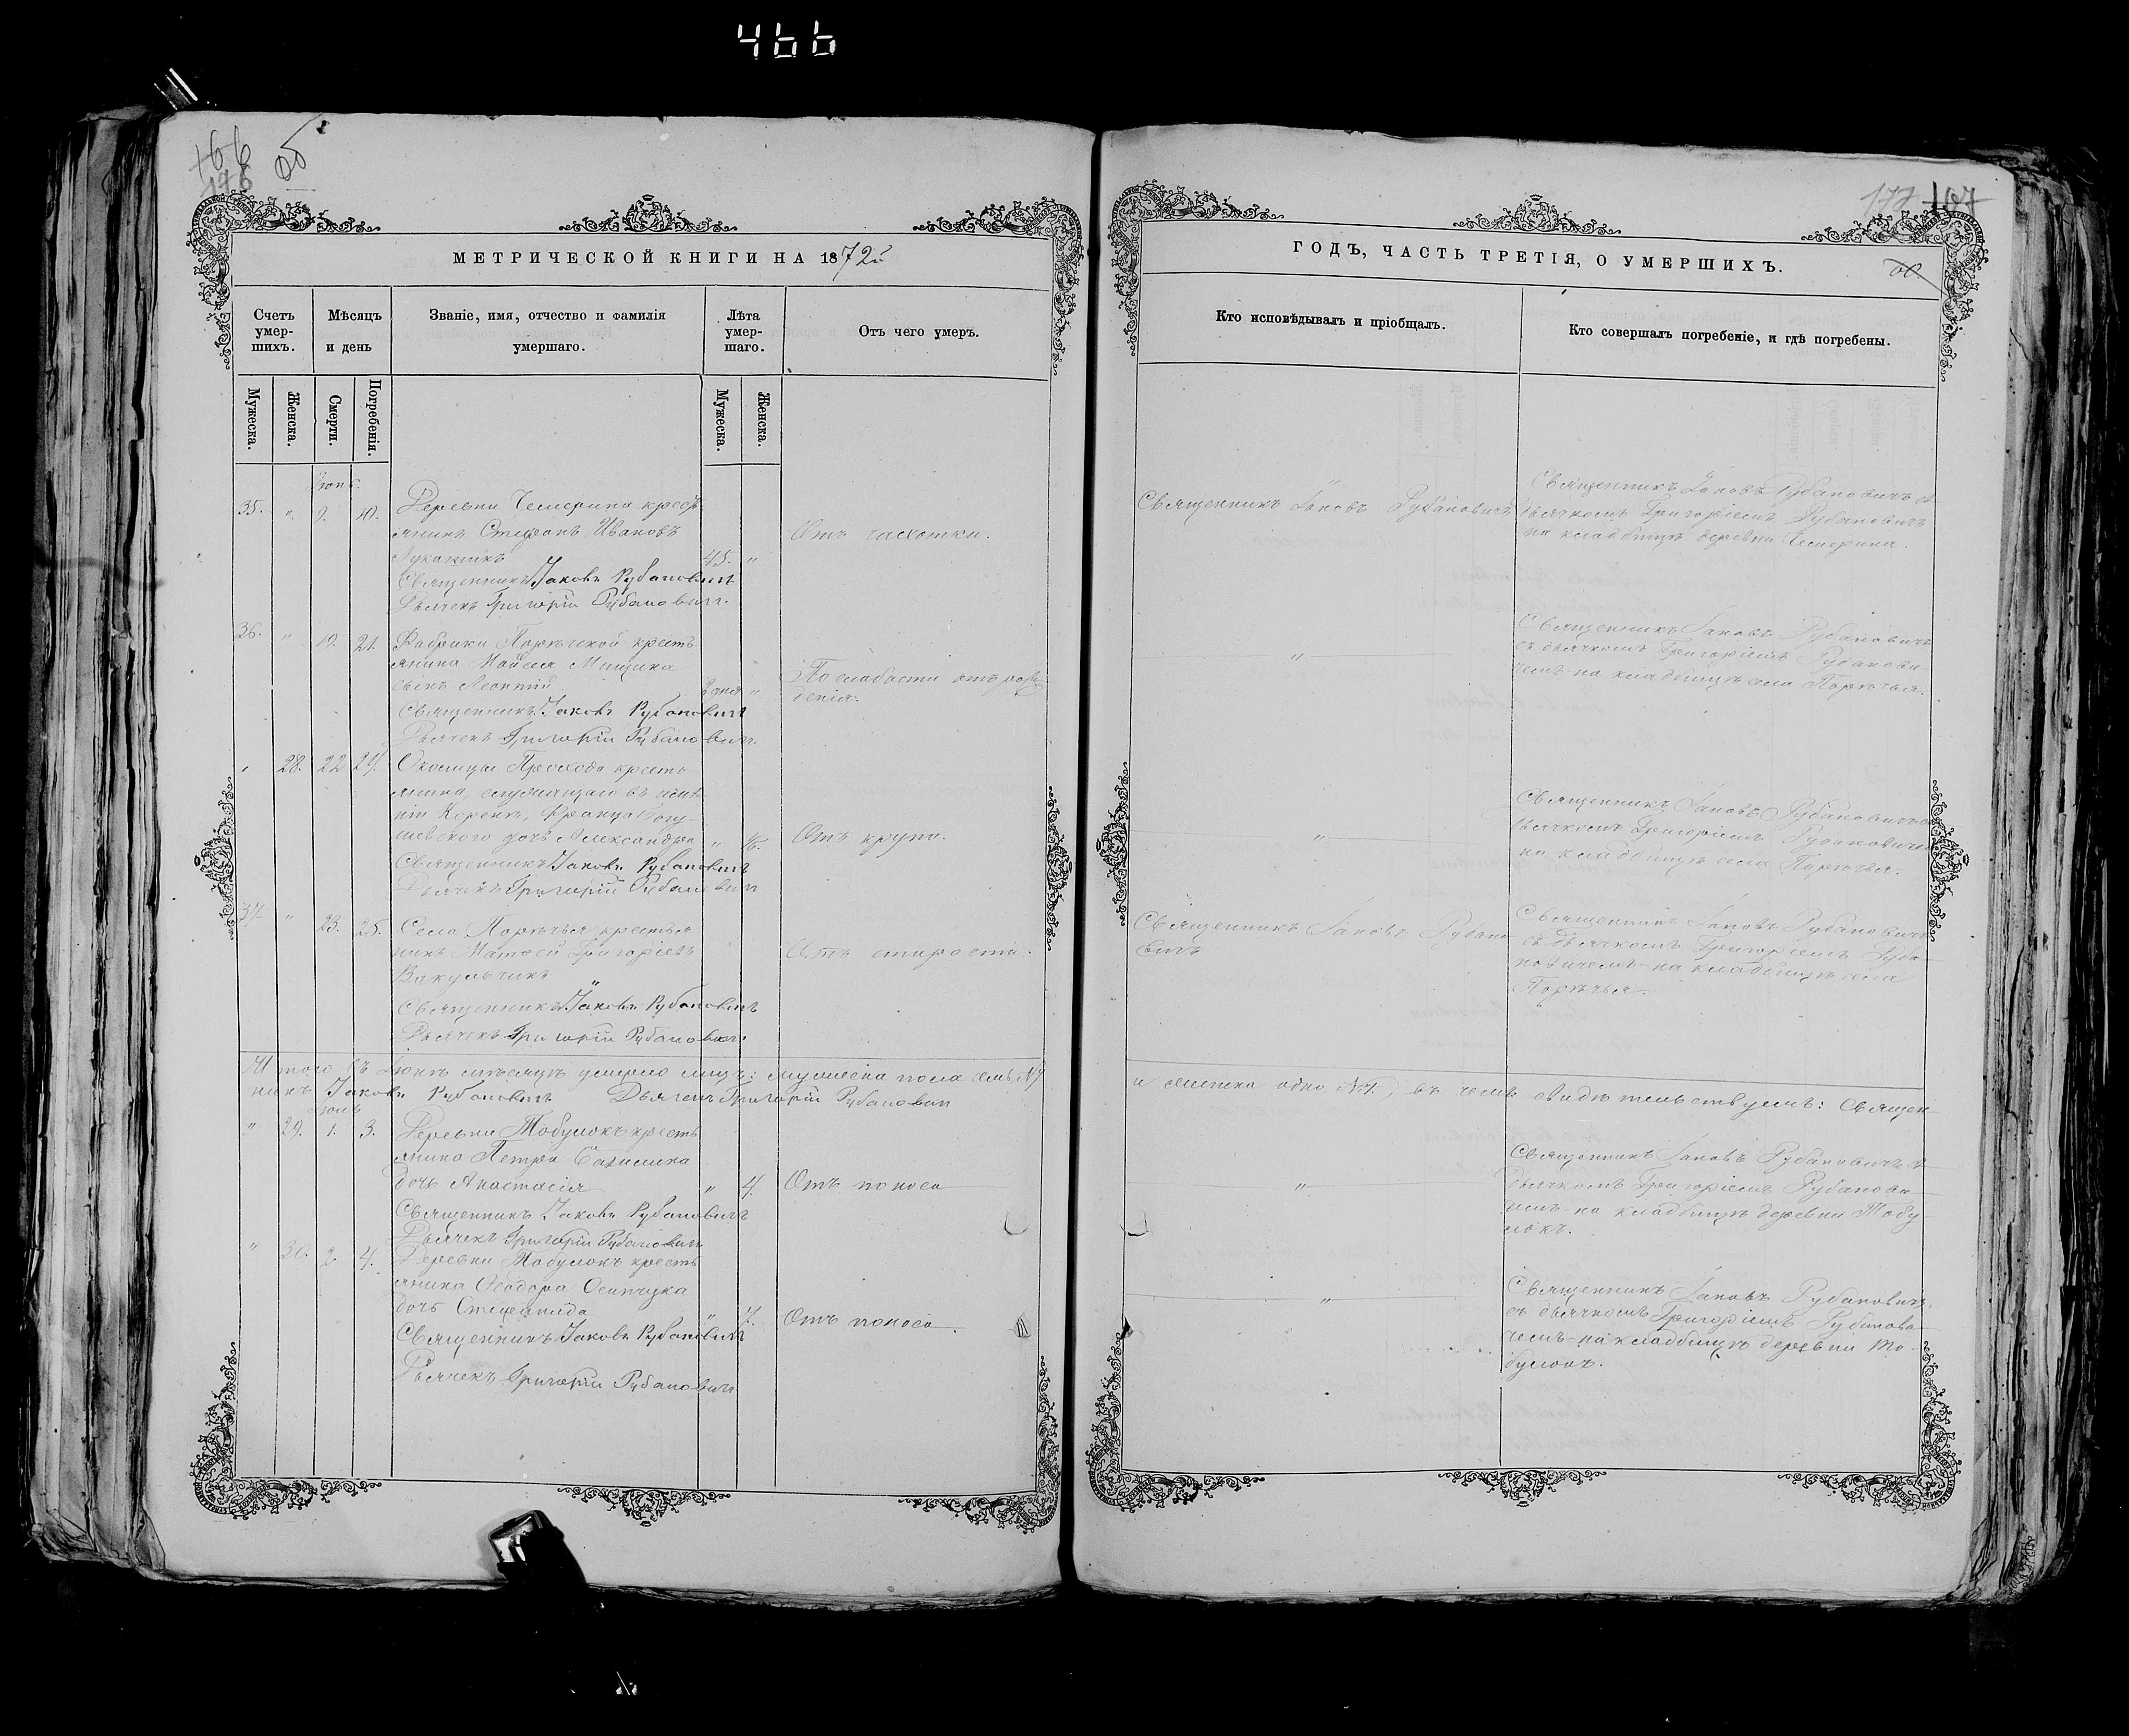 466
166
176
МЕТРИЧЕСКОЙ КНИГИ НА 1872й
Счетъ умер-шихъ.
Мѣсяцъ и день
Званіе, имя, отчество и фамилія умершаго.
Лѣта умер-шаго.
Отъ чего умеръ.
Мужеска.
Женска.
Смерти.
Погребенія.
Мужеска.
Женска.
35. " 9. 10. Деревни Чемерина кресть
янинъ Стефанъ Ивановъ
45. "
Отъ чахотки.
Священникъ Іаковъ Рубановичъ
Дьячекъ Григорій Рубановичъ.
36. " 19. 21. Фабрики Порѣчской кресть
янина Мойсея Мищика
сынъ Леонтій
По слабости отъ рож
денія.
Священникъ Іаковъ Рубановичъ
Дьячекъ Григорій Рубановичъ.
28. 22 24. Околицы Просхода кресть
янина, служащаго въ имѣ
ніи Коренѣ, Франца Богу-
шевскаго дочь Александра "
Отъ крупа.
Священникъ Іаковъ Рубановичъ
Дьячекъ Григорій Рубановичъ
37. " 23. 25. Села Порѣчья крестья
нинъ Матѳей Григоріевъ
Вакульчикъ
Отъ старости.
Священникъ Іаковъ Рубановичъ
Дьячекъ Григорій Рубановичъ.
Итого въ Іюнѣ мѣсяцѣ умерло лицъ: мужеска пола семь №7
никъ Іаковъ Рубановичъ Дьячекъ Григорій Рубановичъ
Іюль
" 29. 1. 3. Деревни Тобулокъ кресть
янина Петра
дочь Анастасія " 4. Отъ поноса
Священникъ Іаковъ Рубановичъ
Дьячекъ Григорій Рубановичъ
" 30. 2. 4. Деревни Тобулокъ кресть
янина Ѳеодора Осипчука
дочь Стефанида " 7. Отъ поноса.
Священникъ Іаковъ Рубановичъ
Дьячекъ Григорій Рубановичъ
177 167
ГОДЪ, ЧАСТЬ ТРЕТІЯ, О УМЕРШИХЪ.
Кто исповѣдывалъ и пріобщалъ.
Кто совершалъ погребеніе, и гдѣ погребены.
Священникъ Іаковъ Рубановичъ
Священникъ Іаковъ Рубановичъ съ
дьячкомъ Григоріемъ Рубановичемъ
на кладбищѣ деревни Чемерина.
"
Священникъ Іаковъ Рубановичъ
съ дьячкомъ Григоріемъ Рубанови
чемъ на кладбищѣ села Порѣчья.
"
Священникъ Іаковъ Рубановичъ съ
дьячкомъ Григоріемъ Рубановичемъ
на кладбищѣ села Порѣчья.
Священникъ Іаковъ Рубано
вичъ
Священникъ Іаковъ Рубановичъ
съ дьячкомъ Григоріемъ Руба-
новичемъ на кладбищѣ села
Порѣчья.
и женска одно №1, въ чемъ свидѣтельствуемъ: Священ-
"
Священникъ Іаковъ Рубановичъ съ
дьячкомъ Григоріемъ Рубанови
чемъ на кладбищѣ деревни Тобу-
локъ.
"
Священникъ Іаковъ Рубановичъ
съ дьячкомъ Григоріемъ Рубанови
чемъ на кладбищѣ деревни То-
булокъ.